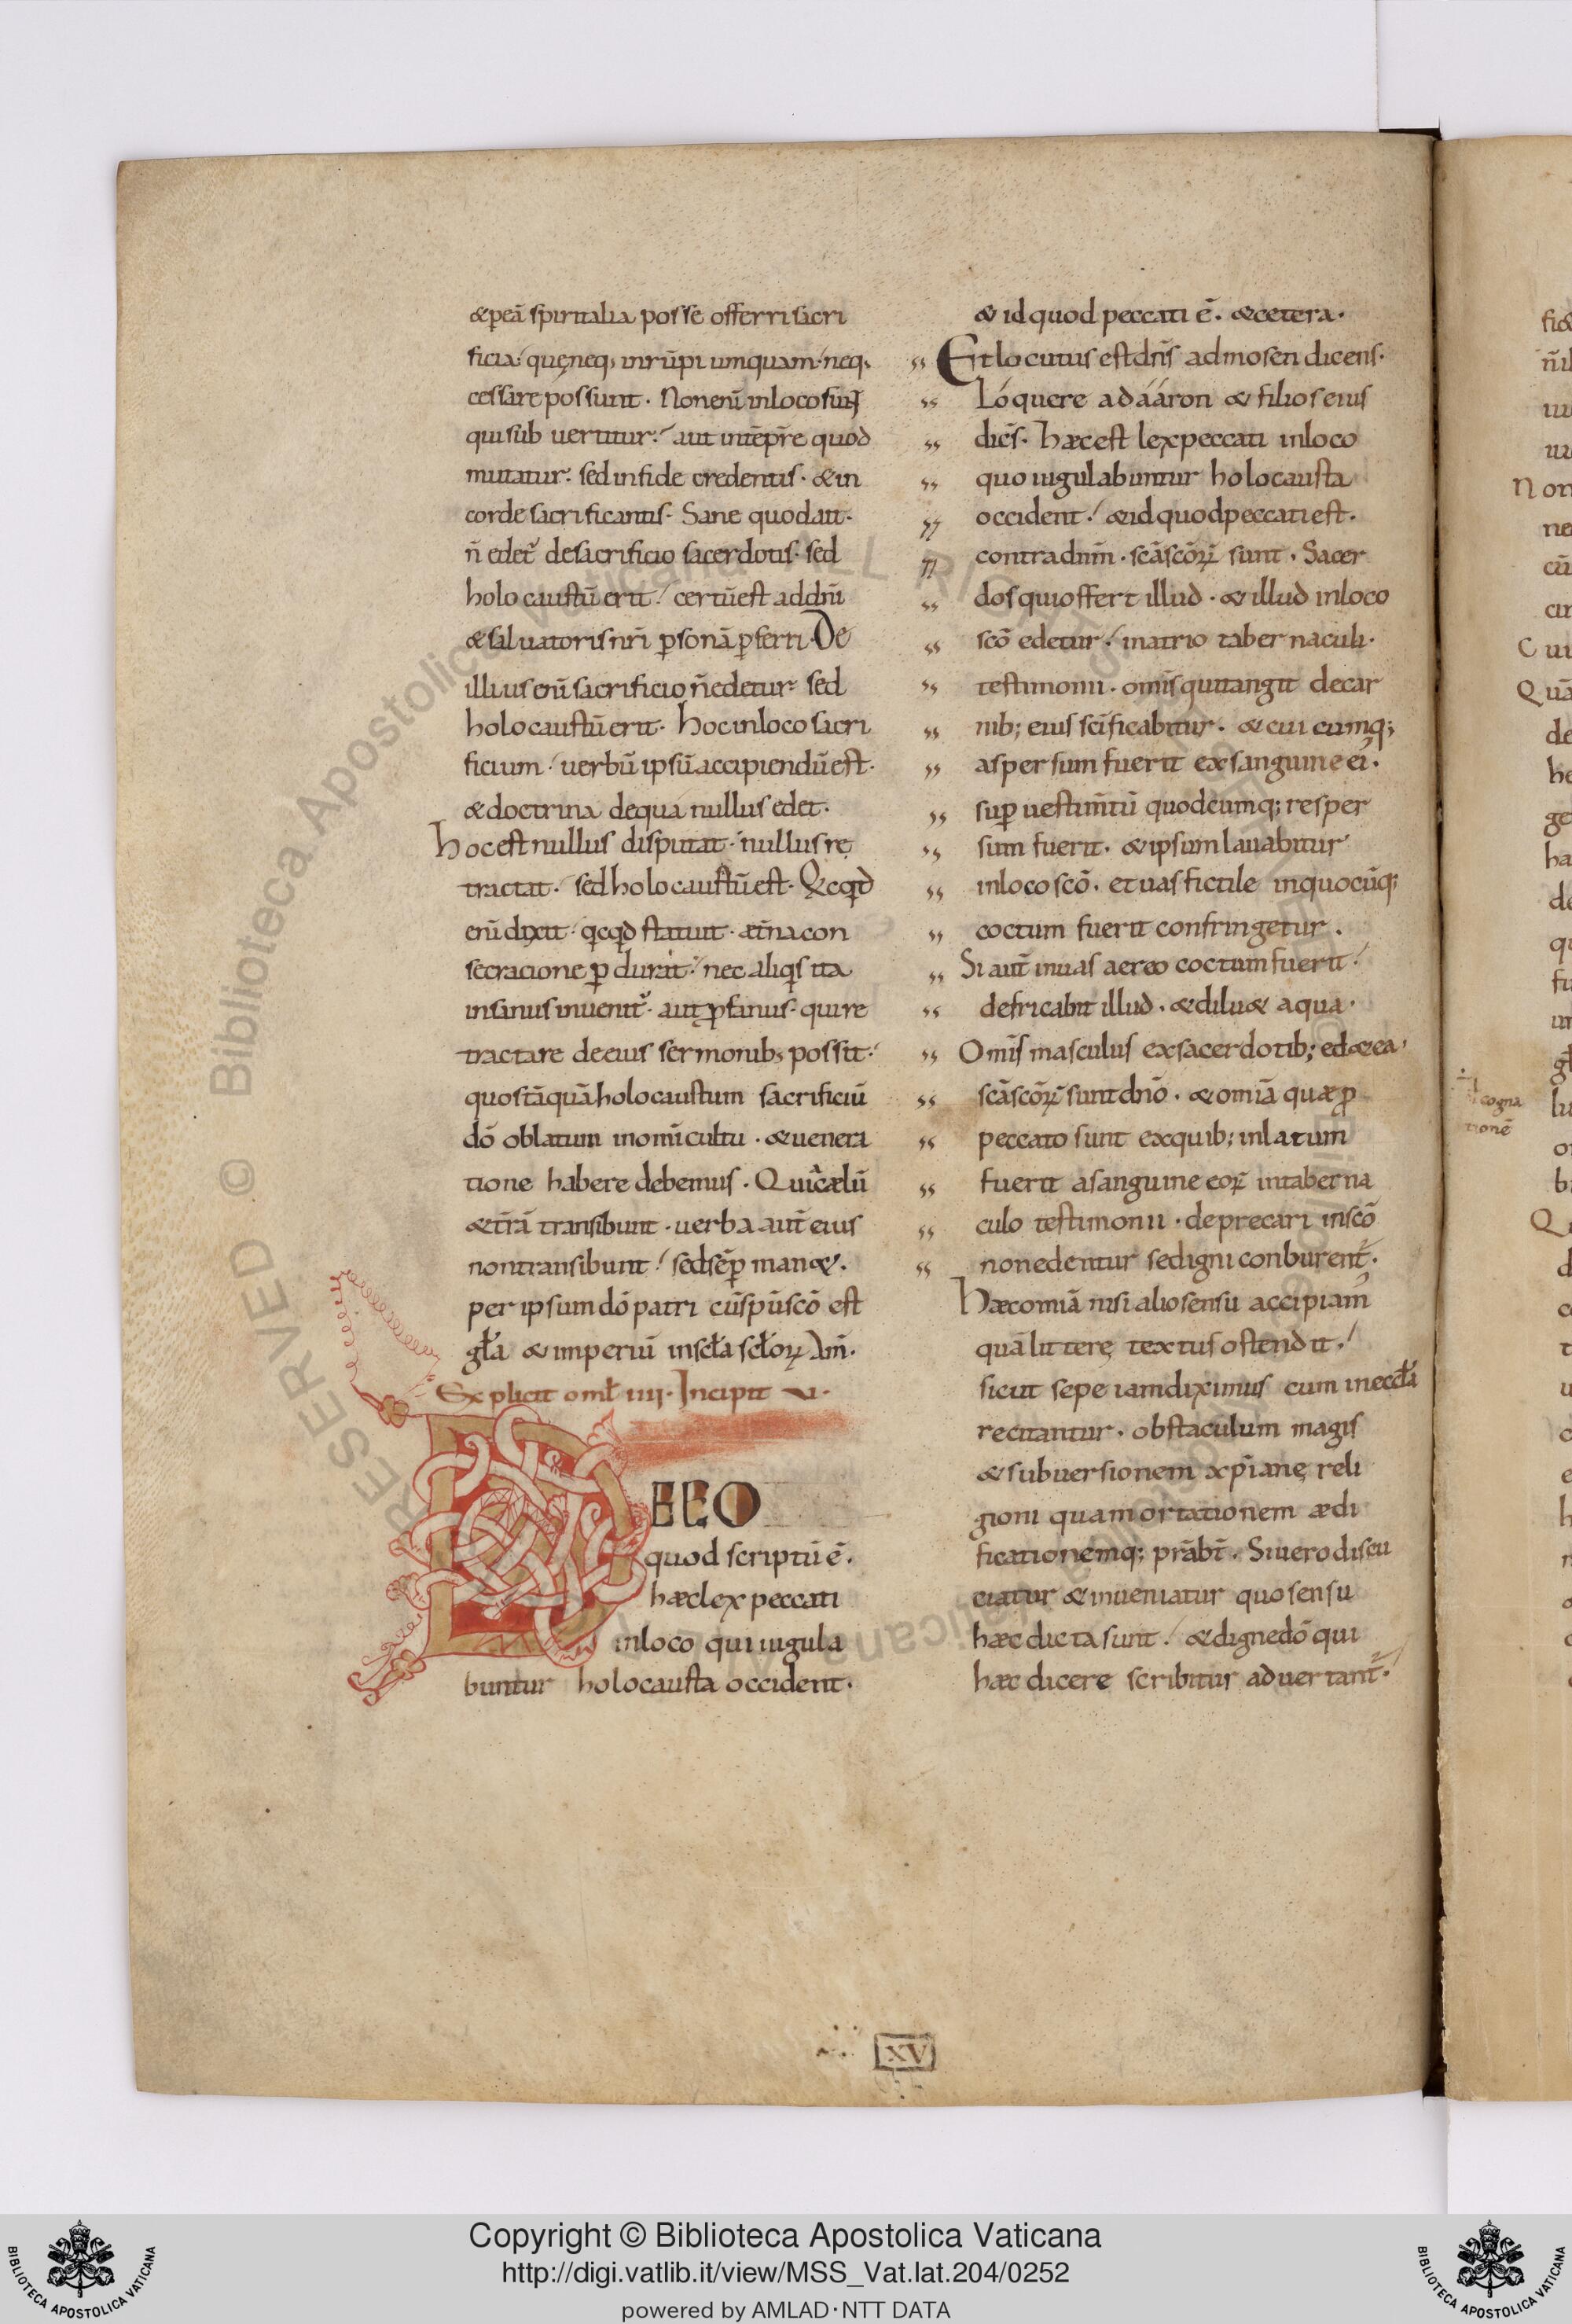 &ꝑeā spiritalia posse offerri sacri
ficia. quęneq; inrūpi umquam. neq;
cessare possunt. Nonenī inloco sunt
quisub uertitur. aut intēpr̄e quod
mutatur. sed infide credentis. &in
corde sacrificantis. Sane quodait.
n̄ edet᷑ desacrificio sacerdotis. sed
holocaustū erit. certūest addn̄i
&saluatorisnr̄i ꝑsonā ꝑferri. De
illiusenī sacrificio n̄edetur. sed
holocaustū erit. hocinloco sacri
ficium. uerbū ipsūaccipiendūest.
&doctrina dequa nullus edet.
hocest nullus disputat. nullus re
tractat. sed holocaustūest. Qcqd
enī dixit. qcqd statuit. æt̄na con
secracione ꝑdurat. nec aliqs ita
insanus inuenit᷑. aut ꝓfanus. quire
tractare deeius sermonib; possit.
quostāquā holocaustum sacrificiū
dō oblatum inomī cultu. &uenera
tione habere debemus. Quia cælū
&tr̄a transibunt. uerba aut̄ eius
nontransibunt. sedsēꝑ man&.
per ipsum dō patri cūspūscō est
gl̄a &imperiū inscl̄a scl̄oꝝ Am̄.
Explicit oml̄ IIII. Incipit V.
EEO
quod scriptū ē.
hæclex peccati
inloco qui iugula
buntur holocausta occident.
& id quod peccati ē. &cetera.
Et locutus est dn̄s admosen dicens.
Lóquere adááron & filios eius
dicēs. hæcest lexpeccati inloco
quo iugulabuntur holocausta
occident. &idquodpeccatiest.
contradnm̄. scāscōꝝ sunt. Sacer
dosquioffert illud. & illud inloco
scō edetur. inatrio tabernaculi.
testimonii. omīs quitangit decar
nib; eius scīficabitur. & cui cumq;
aspersum fuerit exsanguine ei᷒.
suꝑ uestim̄tū quodcumq; resper
sum fuerit. &ipsum lauabitur
inloco scō. et uas fictile inquocūq;
coctum fuerit confringetur.
Si aut̄ inuas aereo coctumfuerit.
defricabit illud. &dilu& aqua.
Omīs masculus exsacerdotib; ed&ea.
scāscōꝝ sunt dn̄o. &omīa quæꝓ
peccato sunt exquib; inlatum
fuerit asanguine eoꝝ intaberna
culo testimonii. deprecari inscō
nonedentur sedigni conburent᷑.
hæcomīa nisi aliosensu accipiam᷒
quā litterę textus ostendit.
sicut sepe iamdiximus cum ineccl̄a
recitantur. obstaculum magis
&subuersionem xp̄iane reli
gioni quam ortationem ædi
ficationemq; prābt̄. Si uero discu
ciatur &inueniatur quo sensu
hæc dicta sunt. &dignedō qui
hæc dicere scribitur aduertant᷑.
XV
fi&
Non
cogna
tionē
Copyright © Biblioteca Apostolica Vaticana
http://digi.vatlib.it/view/MSS_Vat.lat.204/0252
powered by AMLAD·NTT DATA
BIBLIOTECA APOSTOLICA VATICANA
BIBLIOTECA APOSTOLICA VATICANA